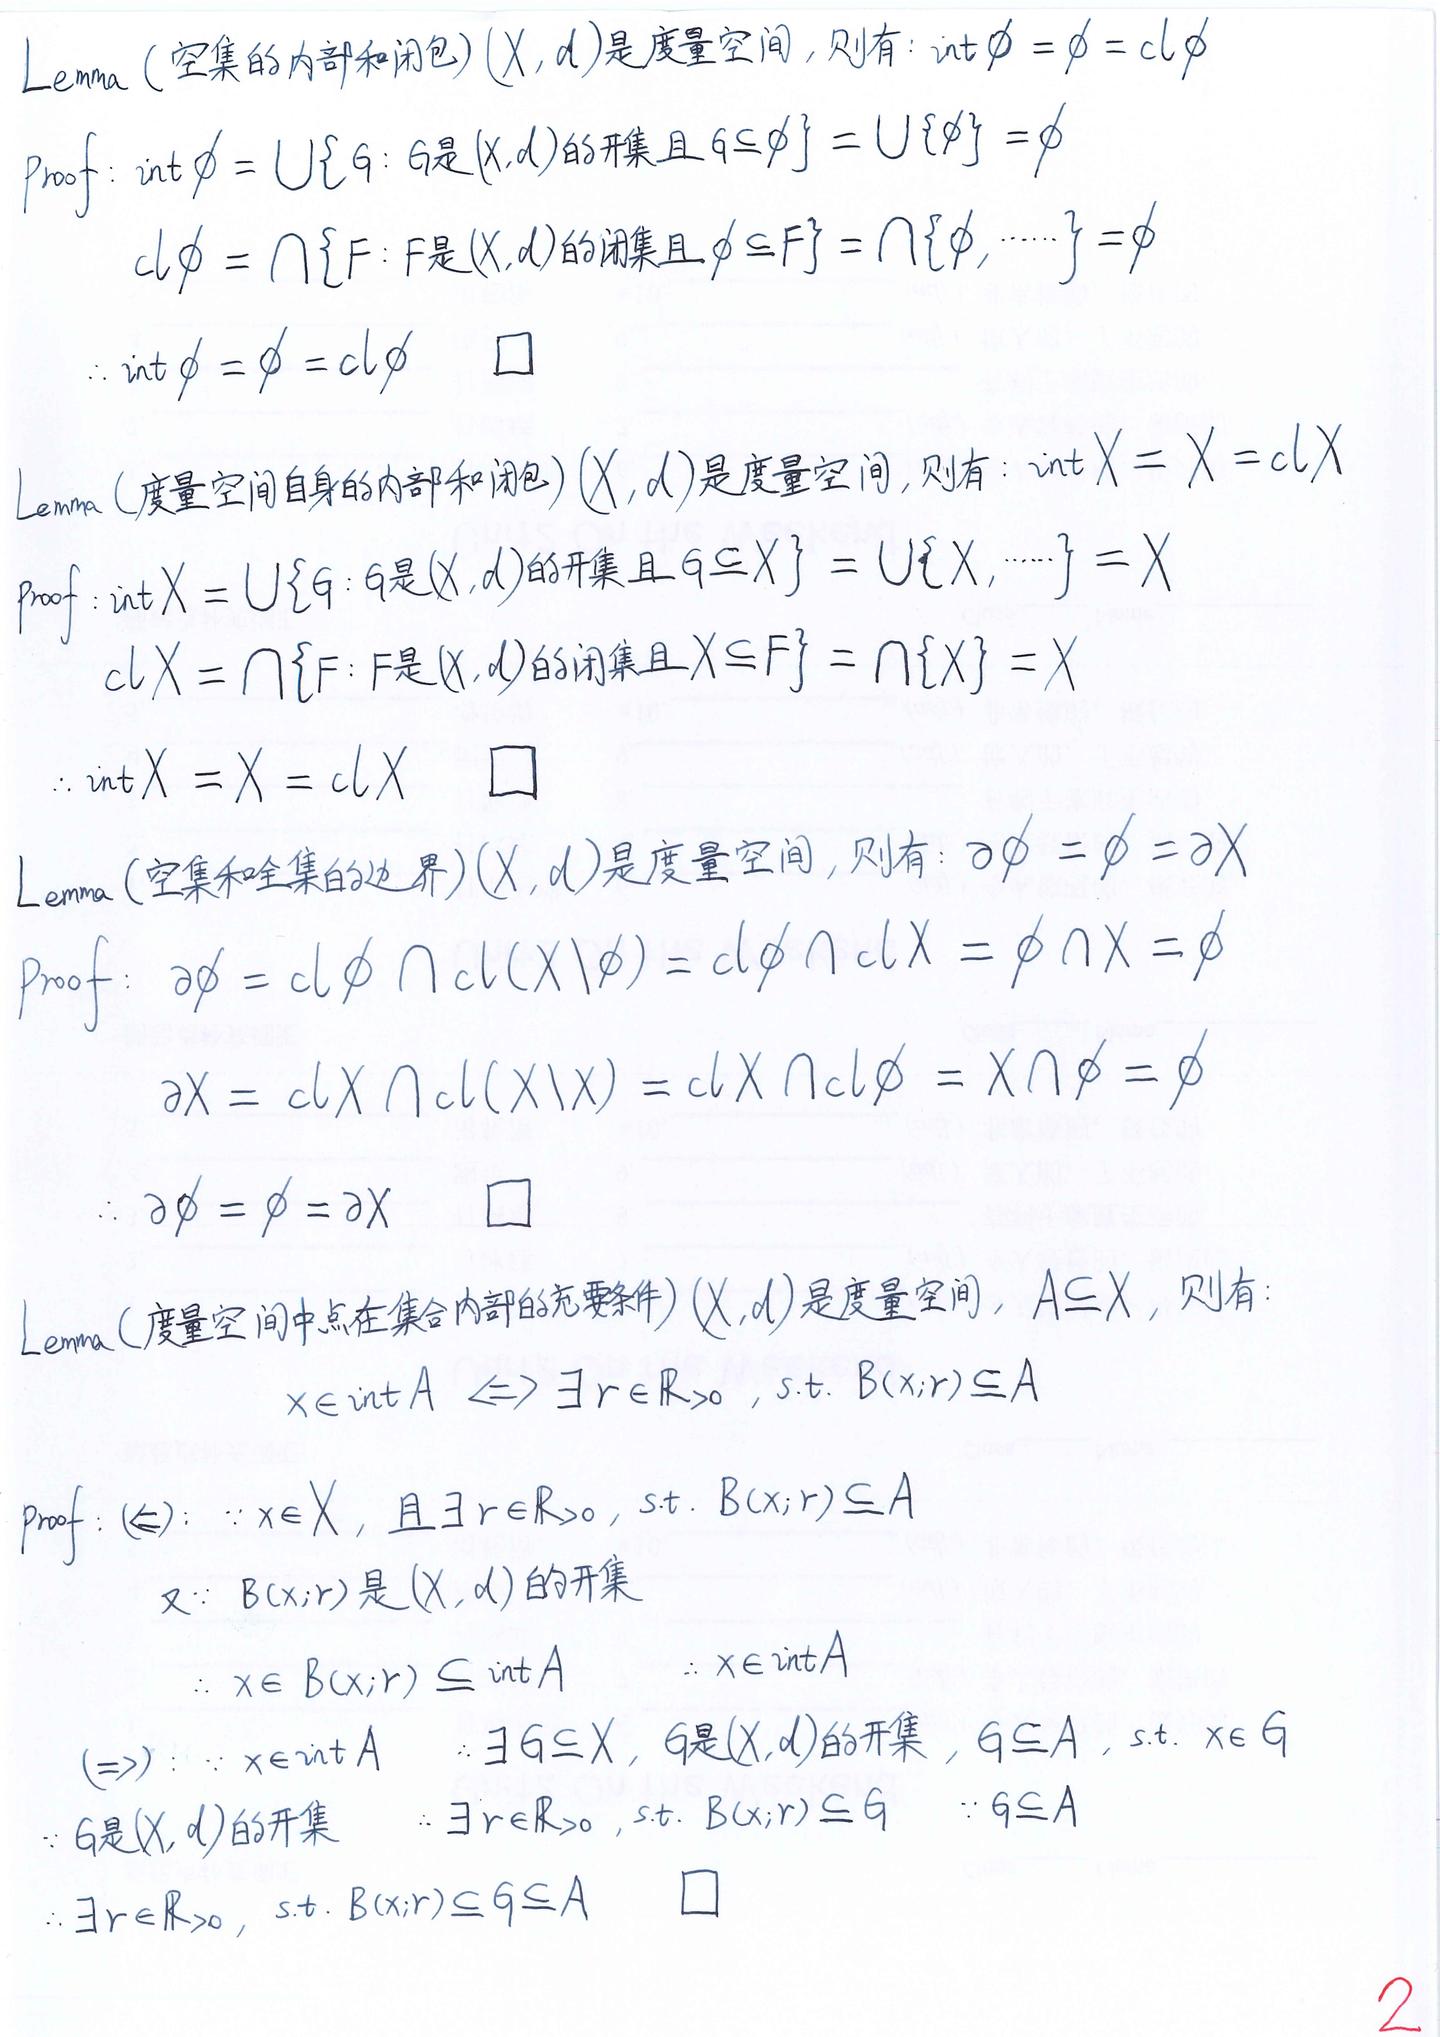 Lemma (空集的内部和闭包) (X, d)是度量空间, 则有: int ϕ = ϕ = cl ϕ
Proof: int ϕ = ⋃{G : G是(X, d)的开集且 G⊆ϕ} = ⋃{ϕ} = ϕ
cl ϕ = ⋂{F : F是(X, d)的闭集且 ϕ⊆F} = ⋂{ϕ, ……} = ϕ
∴ int ϕ = ϕ = cl ϕ □
Lemma (度量空间自身的内部和闭包) (X, d)是度量空间, 则有: int X = X = cl X
Proof: int X = ⋃{G : G是(X, d)的开集且 G⊆X} = ⋃{X, ……} = X
cl X = ⋂{F : F是(X, d)的闭集且 X⊆F} = ⋂{X} = X
∴ int X = X = cl X □
Lemma (空集和全集的边界) (X, d)是度量空间, 则有: ∂ϕ = ϕ = ∂X
Proof: ∂ϕ = cl ϕ ∩ cl(X\ϕ) = cl ϕ ∩ cl X = ϕ ∩ X = ϕ
∂X = cl X ∩ cl(X\X) = cl X ∩ cl ϕ = X ∩ ϕ = ϕ
∴ ∂ϕ = ϕ = ∂X □
Lemma (度量空间中点在集合内部的充要条件) (X, d)是度量空间, A⊆X, 则有:
x∈int A <=> ∃r∈ℝ>0, s.t. B(x;r)⊆A
Proof: (<=): ∵ x∈X, 且∃r∈ℝ>0, s.t. B(x;r)⊆A
又∵ B(x;r)是(X, d)的开集
∴ x∈B(x;r)⊆int A ∴ x∈int A
(=>): ∵ x∈int A ∴ ∃G⊆X, G是(X, d)的开集, G⊆A, s.t. x∈G
∵ G是(X, d)的开集 ∴ ∃r∈ℝ>0, s.t. B(x;r)⊆G ∵ G⊆A
∴ ∃r∈ℝ>0, s.t. B(x;r)⊆G⊆A □
2